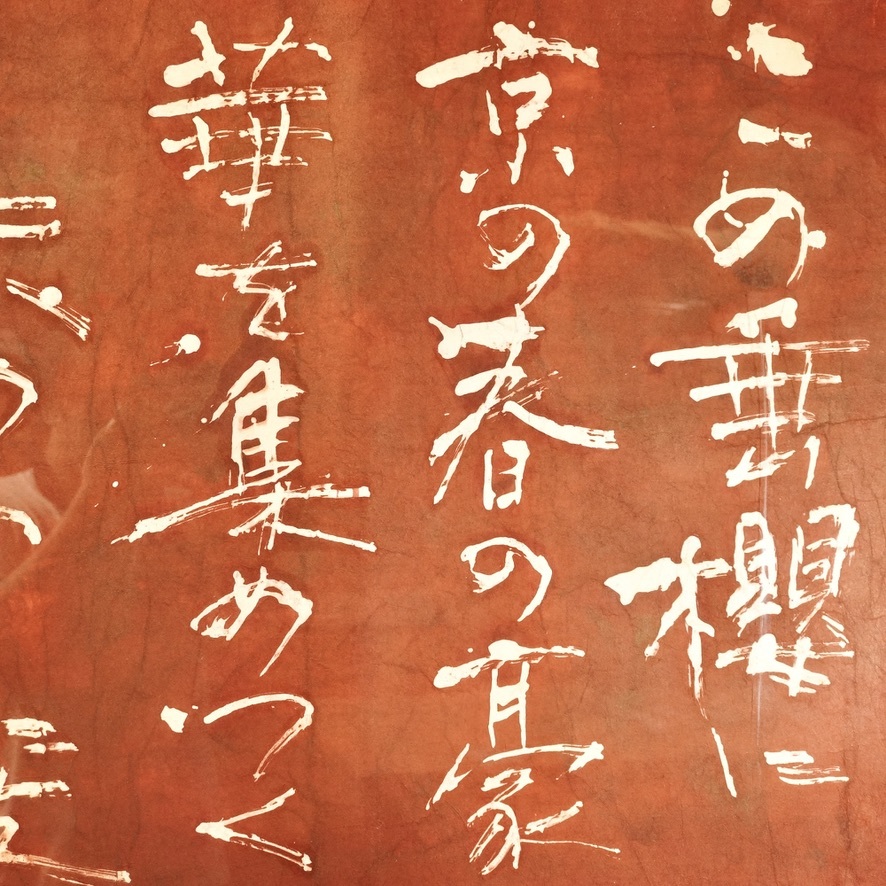 この垂櫻に
京の春の豪
華を集めつく